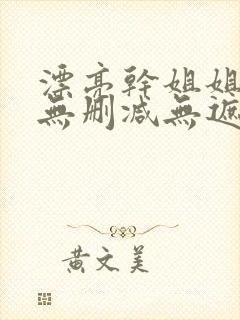 漂亮幹姐姐
無刪减無遮
黄文美